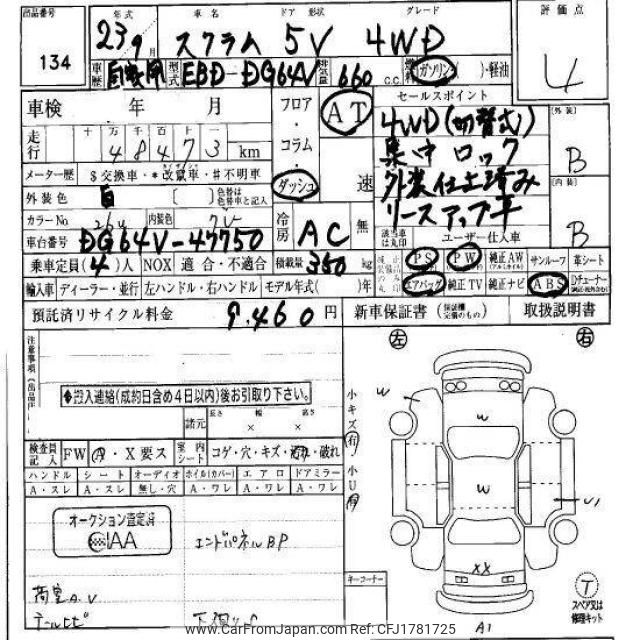 出品番号 年式 車名 ドア 形状 グレード 評価点
134 23 9月 スクラム 5V 4WD 4
車歴 自家用 型式 EBD-DG64V 排気量 660 c.c. ガソリン・( )・軽油
車検 年 月 フロア・コラム・ダッシュ AT 速 セールスポイント
走行 十 万 千 百 十 一 4WD(切替式) 外装
48473 km 集中ロック B
メーター歴 $交換車・*改竄車・#不明車 外装仕上済み 内装
外装色 白 [ ] 色替は色替車と記入 リースアップ車 B
カラーNo 26U 内装色 グレー 冷房 AC 無 該当車は丸印 ユーザー仕入車
車台番号 DG64V-47750
乗車定員(4)人 NOX 適合・不適合 積載量 350 kg PS PW 純正AW サンルーフ 革シート
輸入車 ディーラー・並行 左ハンドル・右ハンドル モデル年式( )年 エアバッグ 純正TV 純正ナビ ABS Dチューナー
預託済リサイクル料金 9,460 円 新車保証書 取扱説明書
注意事項(出品店) 左 右
◆搬入連絡(成約日含め4日以内)後お引取り下さい。
諸元 長さ 幅 高さ × × 小キズ有
検査員記入 FW A・X要ス 室内シート コゲ・穴・キズ・汚れ・破れ 小U有
ハンドル シート オーディオ ホイル(カバー) エアロ ドアミラー
A・スレ A・スレ 無し・穴 A・ワレ A・ワレ A・ワレ
W W W U1 XX
オークション査定済
AIAA
エンドパネルBP
荷室A.V
テールヒビ
キーコーナー
T
スペア又は修理キット
A1
www.CarFromJapan.com Ref:CFJ1781725